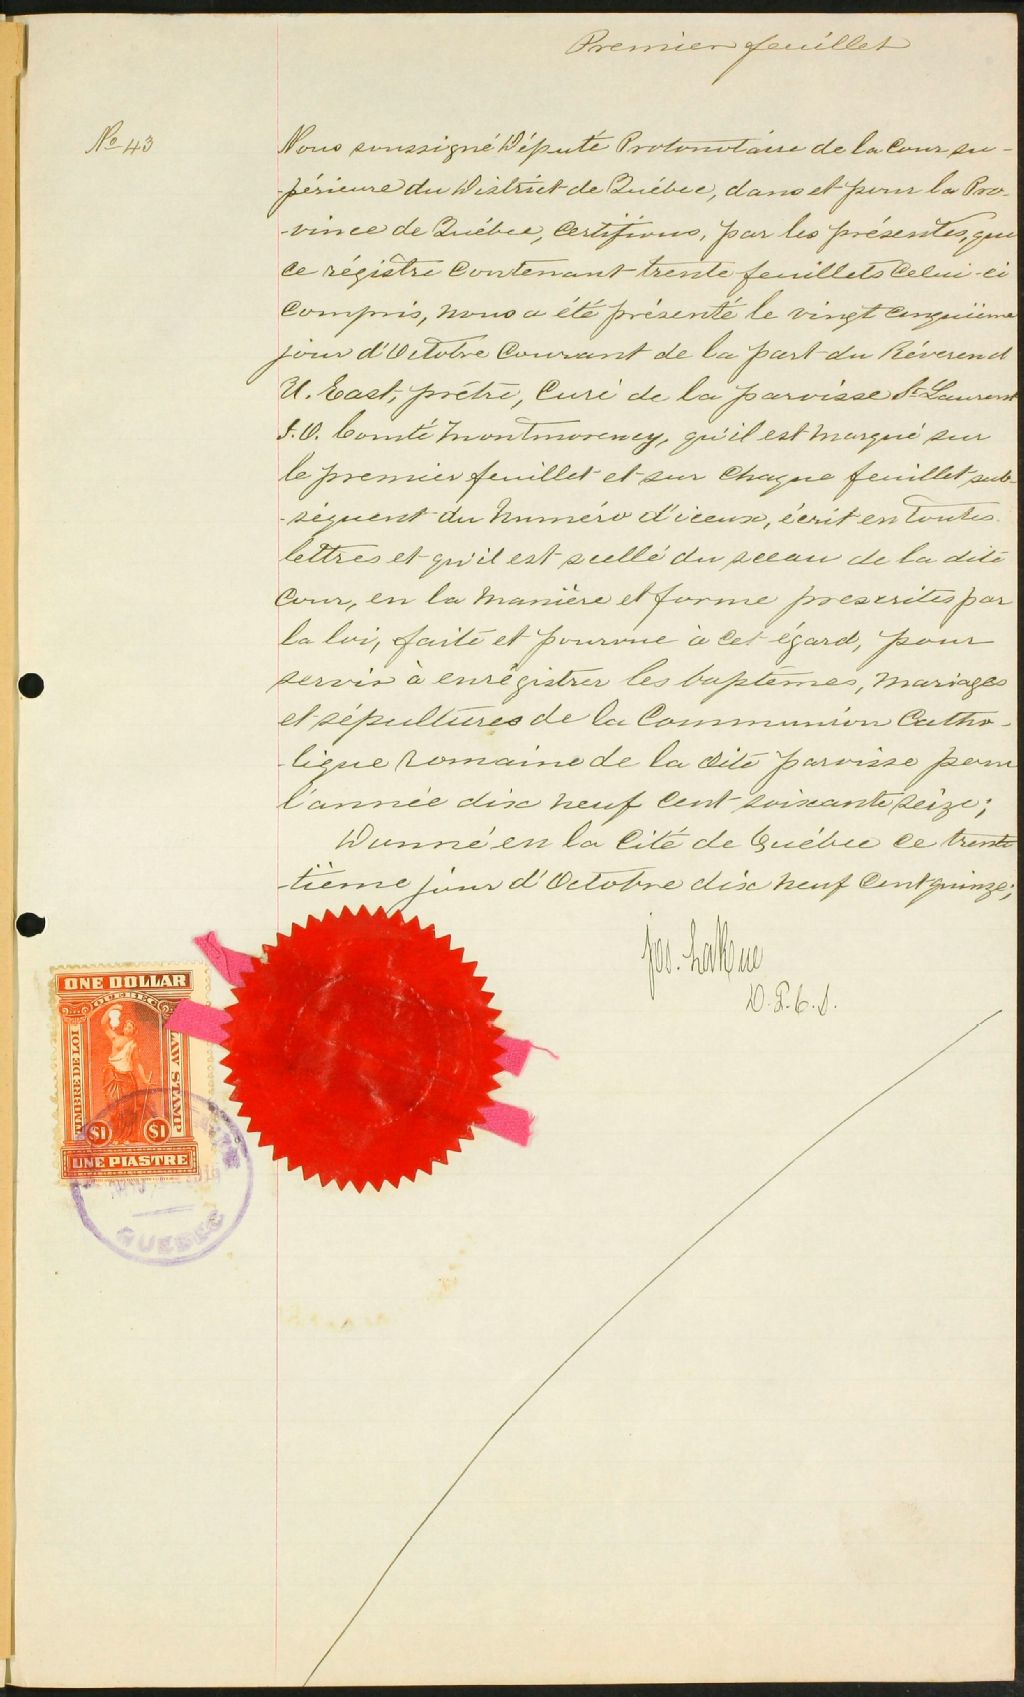 Premier feuillet
No 43
Nous soussigné Député Protonotaire de la Cour su-
-périeure du District de Québec, dans et pour la Pro-
-vince de Québec, Certifions, par les présentes, que
ce régistre contenant trente feuillets celui-ci
compris, nous a été présenté le vingt cinquième
jour d'Octobre courant de la part du Révérend
U. East, prêtre, Curé de la paroisse St Laurent
I.O. Comté Montmorency, qu'il est marqué sur
le premier feuillet et sur chaque feuillet sub-
-séquent du numéro d'iceux, écrit en toutes
lettres et qu'il est scellé du sceau de la dite
Cour, en la manière et forme prescrites par
la loi, faite et pourvue à cet égard, pour
servir à enrégistrer les baptêmes, mariages
et sépultures de la Communion Catho-
-lique romaine de la dite paroisse pour
l'année dix neuf cent soixante seize;
Donné en la Cité de Québec ce trent
-tième jour d'Octobre dix neuf cent quinze;
Jos. LaRue
D.P.C.S.
ONE DOLLAR
QUEBEC
TIMBRE DE LOI
LAW STAMP
$1 $1
UNE PIASTRE
QUEBEC